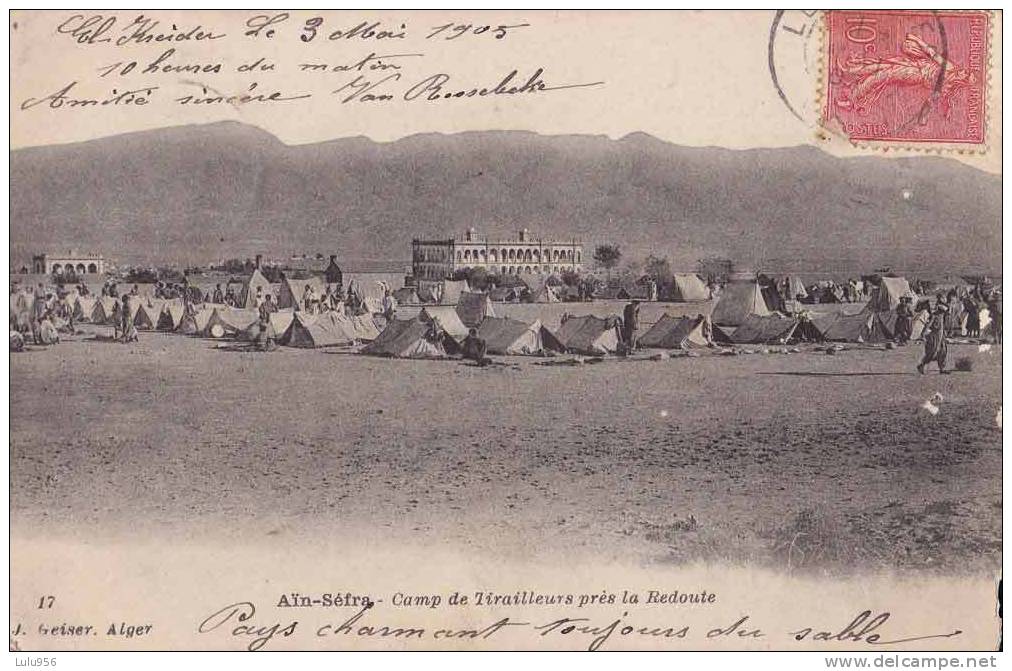 El-Kreider Le 3 Mai 1905
10 heures du matin
Amitié sincère Van Rossebeke
REPUBLIQUE FRANÇAISE
10 c
POSTES
17
Aïn-Séfra - Camp de Tirailleurs près la Redoute
J. Geiser, Alger
Pays charmant toujours du sable
Lulu956
www.delcampe.net